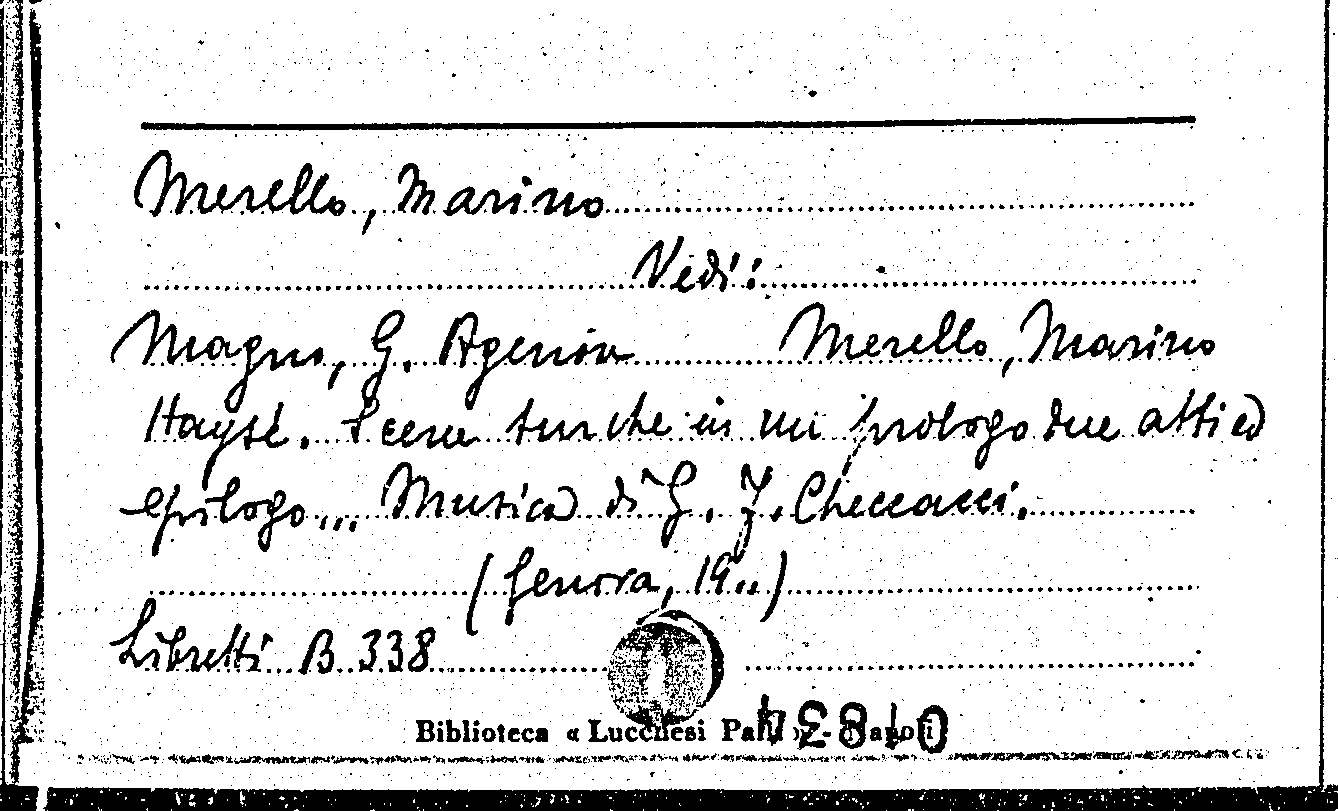 Merello, Marino
Vedi:
Magno, G. Agenore Merello, Marino
Haysé. Scene turche in un prologo due atti ed
epilogo... Musica di G. J. Checcacci.
(Genova, 19..)
Libretti B 338
Biblioteca « Lucchesi Palli » - Napoli